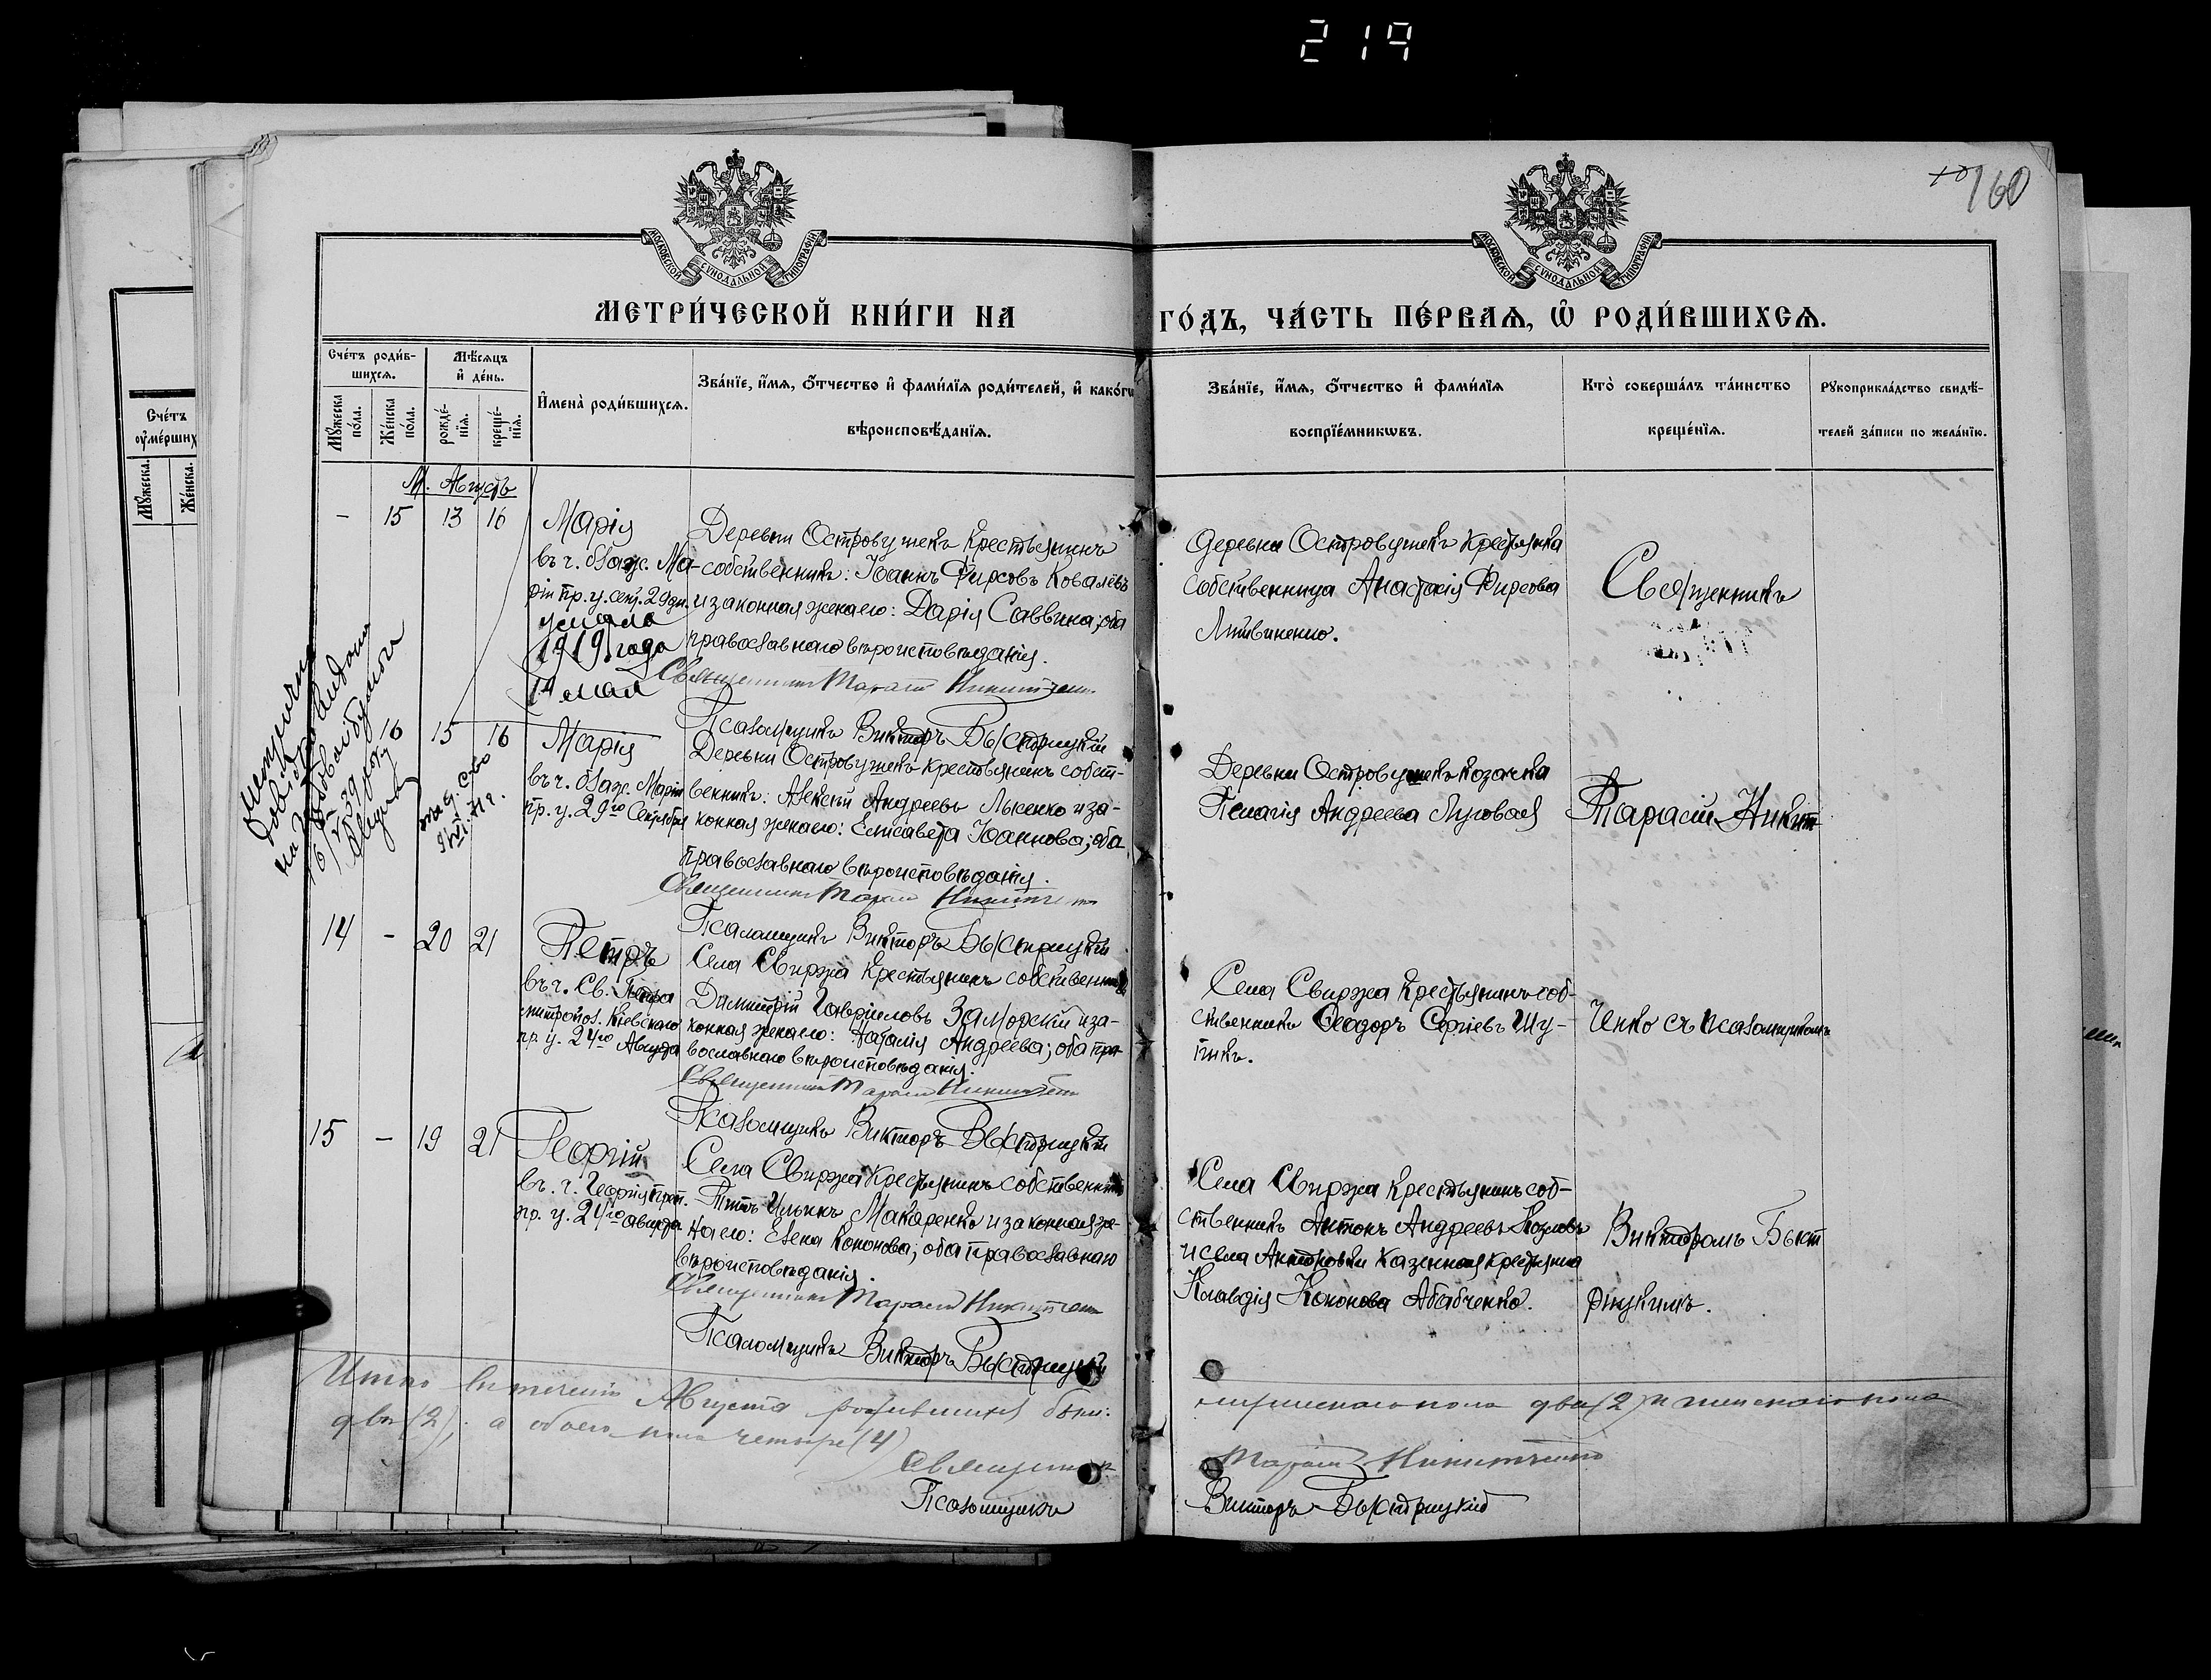 219
160
МОСКОВСКОЙ СѴНОДАЛЬНОЙ ТИПОГРАФІИ
МОСКОВСКОЙ СѴНОДАЛЬНОЙ ТИПОГРАФІИ
МЕТРИ́ЧЕСКОЙ КНИ́ГИ НА
ГО́ДЪ, ЧА́СТЬ ПЕ́РВАѦ, Ѡ҆ РОДИ́ВШИХСѦ.
Сче́тъ роди́в-
шихсѧ.
Мꙋ́жеска по́ла.
Же́нска по́ла.
Мѣ́сѧцъ
и҆ де́нь.
рожде́-
нїѧ.
креще́-
нїѧ.
И҆мена̀ роди́вшихсѧ.
Зва́нїе, и҆́мѧ, ѻ҆́тчество и҆ фами́лїѧ роди́телей, и҆ како́гѡ
вѣроисповѣ́данїѧ.
Зва́нїе, и҆́мѧ, ѻ҆́тчество и҆ фами́лїѧ
воспрїе́мникѡвъ.
Кто̀ соверша́лъ та́инство
креще́нїѧ.
Рꙋкоприкла́дство свидѣ́-
телей за́писи по жела́нїю.
Сче́тъ
ᲂу҆ме́рших
Мꙋ́жеска.
Же́нска.
М. Августъ
- 15 13 16
Марія
въ ч. блаж. Ма-
ріи пр. у. сент. 29 дн.
умерла
1919 года
14 мая
Деревни Островушекъ крестьянинъ
собственникъ: Іоаннъ Фирсовъ Ковалевъ
и законная жена его: Дарія Саввина; оба
православнаго вѣроисповѣданія.
Священникъ Тарасій Никитченко
Псаломщикъ Викторъ Быстрицкій
Деревни Островушекъ крестьянка
собственница Анастасія Фирсова
Литвиненко.
Священникъ
16 15 16
Марія
въ ч. блаж. Маріи
пр. у. 29го Сентября
Деревни Островушекъ крестьянинъ собст-
венникъ: Алексѣй Андреевъ Лысенко и за-
конная жена его: Елисавета Іоаннова; оба
православнаго вѣроисповѣданія.
Священникъ Тарасій Никитченко
Псаломщикъ Викторъ Быстрицкій
Деревни Островушекъ козачка
Пелагія Андреева Луговая
Тарасій Никит-
14 - 20 21
Петръ
въ ч. Св. Петра
митропол. Кіевскаго
пр. у. 24го Августа
Села Свиржа крестьянинъ собственникъ
Димитрій Гавріиловъ Заморскій и за-
конная жена его: Наталія Андреева; оба пра-
вославнаго вѣроисповѣданія.
Священникъ Тарасій Никитченко
Псаломщикъ Викторъ Быстрицкій
Села Свиржа крестьянинъ соб-
ственникъ Ѳеодоръ Сергіевъ Шу-
пикъ.
ченко съ псаломщикомъ
15 - 19 21
Георгій
въ ч. Георгія преп.
пр. у. 24го августа
Села Свиржа крестьянинъ собственникъ
Титъ Ильинъ Макаренко и законная же-
на его: Елена Кононова; оба православнаго
вѣроисповѣданія.
Священникъ Тарасій Никитченко
Псаломщикъ Викторъ Быстрицкій
Села Свиржа крестьянинъ соб-
ственникъ Антонъ Андреевъ Козловъ
и села казенная крестьянка
Клавдія Кононова Абабченко.
Викторомъ Быст
рицкимъ.
Итого въ теченіи Августа родившихся было:
мужескаго пола два (2) и женскаго пола
два (2); а обоего пола четыре (4)
Священникъ
Тарасій Никитченко
Псаломщикъ
Викторъ Быстрицкій